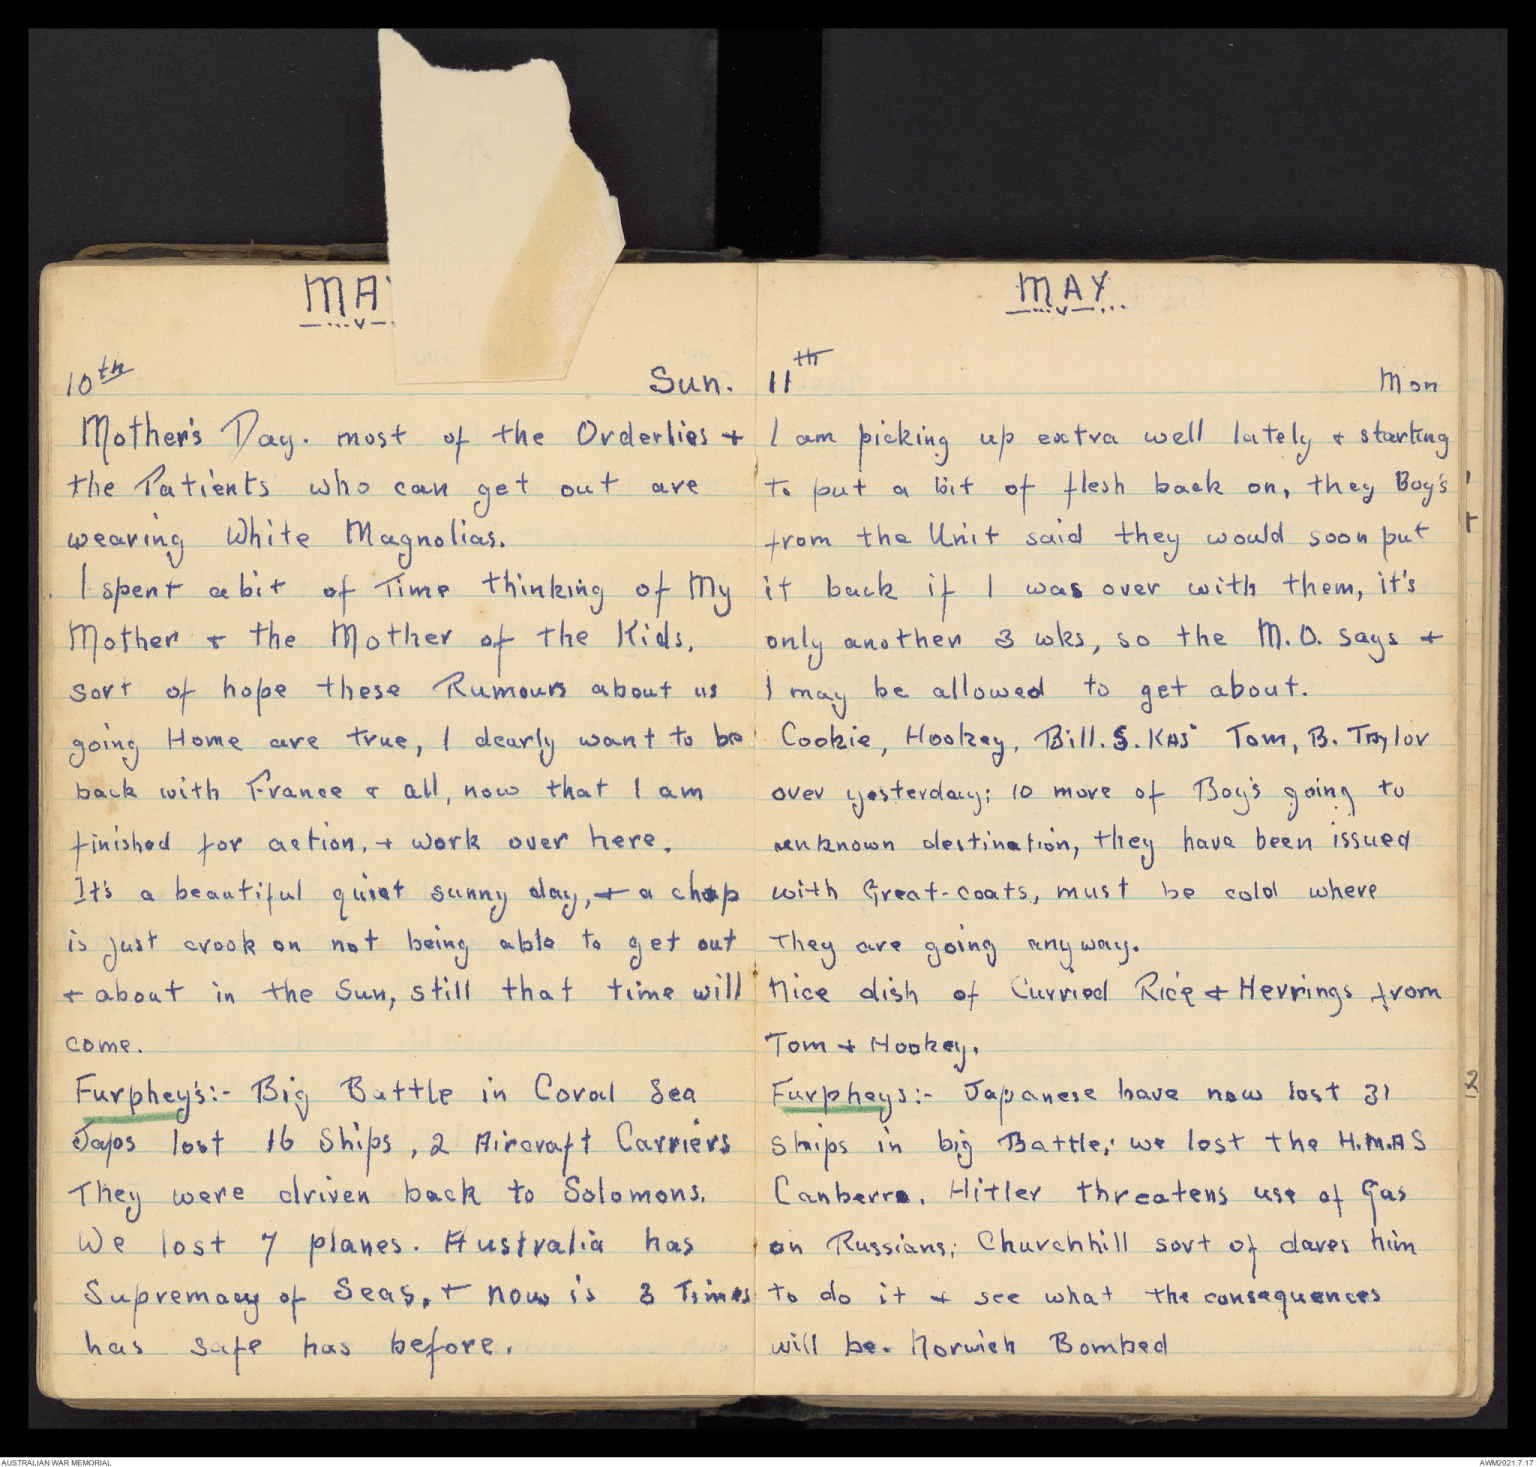 MAY
10th Sun.
Mother's Day. most of the Orderlies +
the Patients who can get out are
wearing White Magnolias.
I spent a bit of Time thinking of My
Mother & the Mother of the Kids,
sort of hope these Rumours about us
going Home are true, I dearly want to be
back with France & all, now that I am
finished for action, + work over here.
It's a beautiful quiet sunny day, + a chap
is just crook on not being able to get out
+ about in the Sun, still that time will
come.
Furphey's:- Big Battle in Coral Sea
Japs lost 16 Ships, 2 Aircraft Carriers
They were driven back to Solomons.
We lost 7 planes. Australia has
Supremacy of Seas, + now is 3 Times
has safe has before.
MAY
11th Mon
I am picking up extra well lately & starting
to put a bit of flesh back on, they Boy's
from the Unit said they would soon put
it back if I was over with them, it's
only another 3 wks, so the M.O. says +
I may be allowed to get about.
Cookie, Hookey, Bill. S. Kas Tom, B. Taylor
over yesterday; 10 more of Boy's going to
unknown destination, they have been issued
with Great-coats, must be cold where
they are going anyway.
Nice dish of Curried Rice & Herrings from
Tom + Hookey.
Furpheys:- Japanese have now lost 31
Ships in big Battle; we lost the H.M.A S
Canberra. Hitler threatens use of Gas
on Russians; Churchhill sort of dares him
to do it + see what the consequences
will be. Norwich Bombed
AUSTRALIAN WAR MEMORIAL
AWM2021.7.17